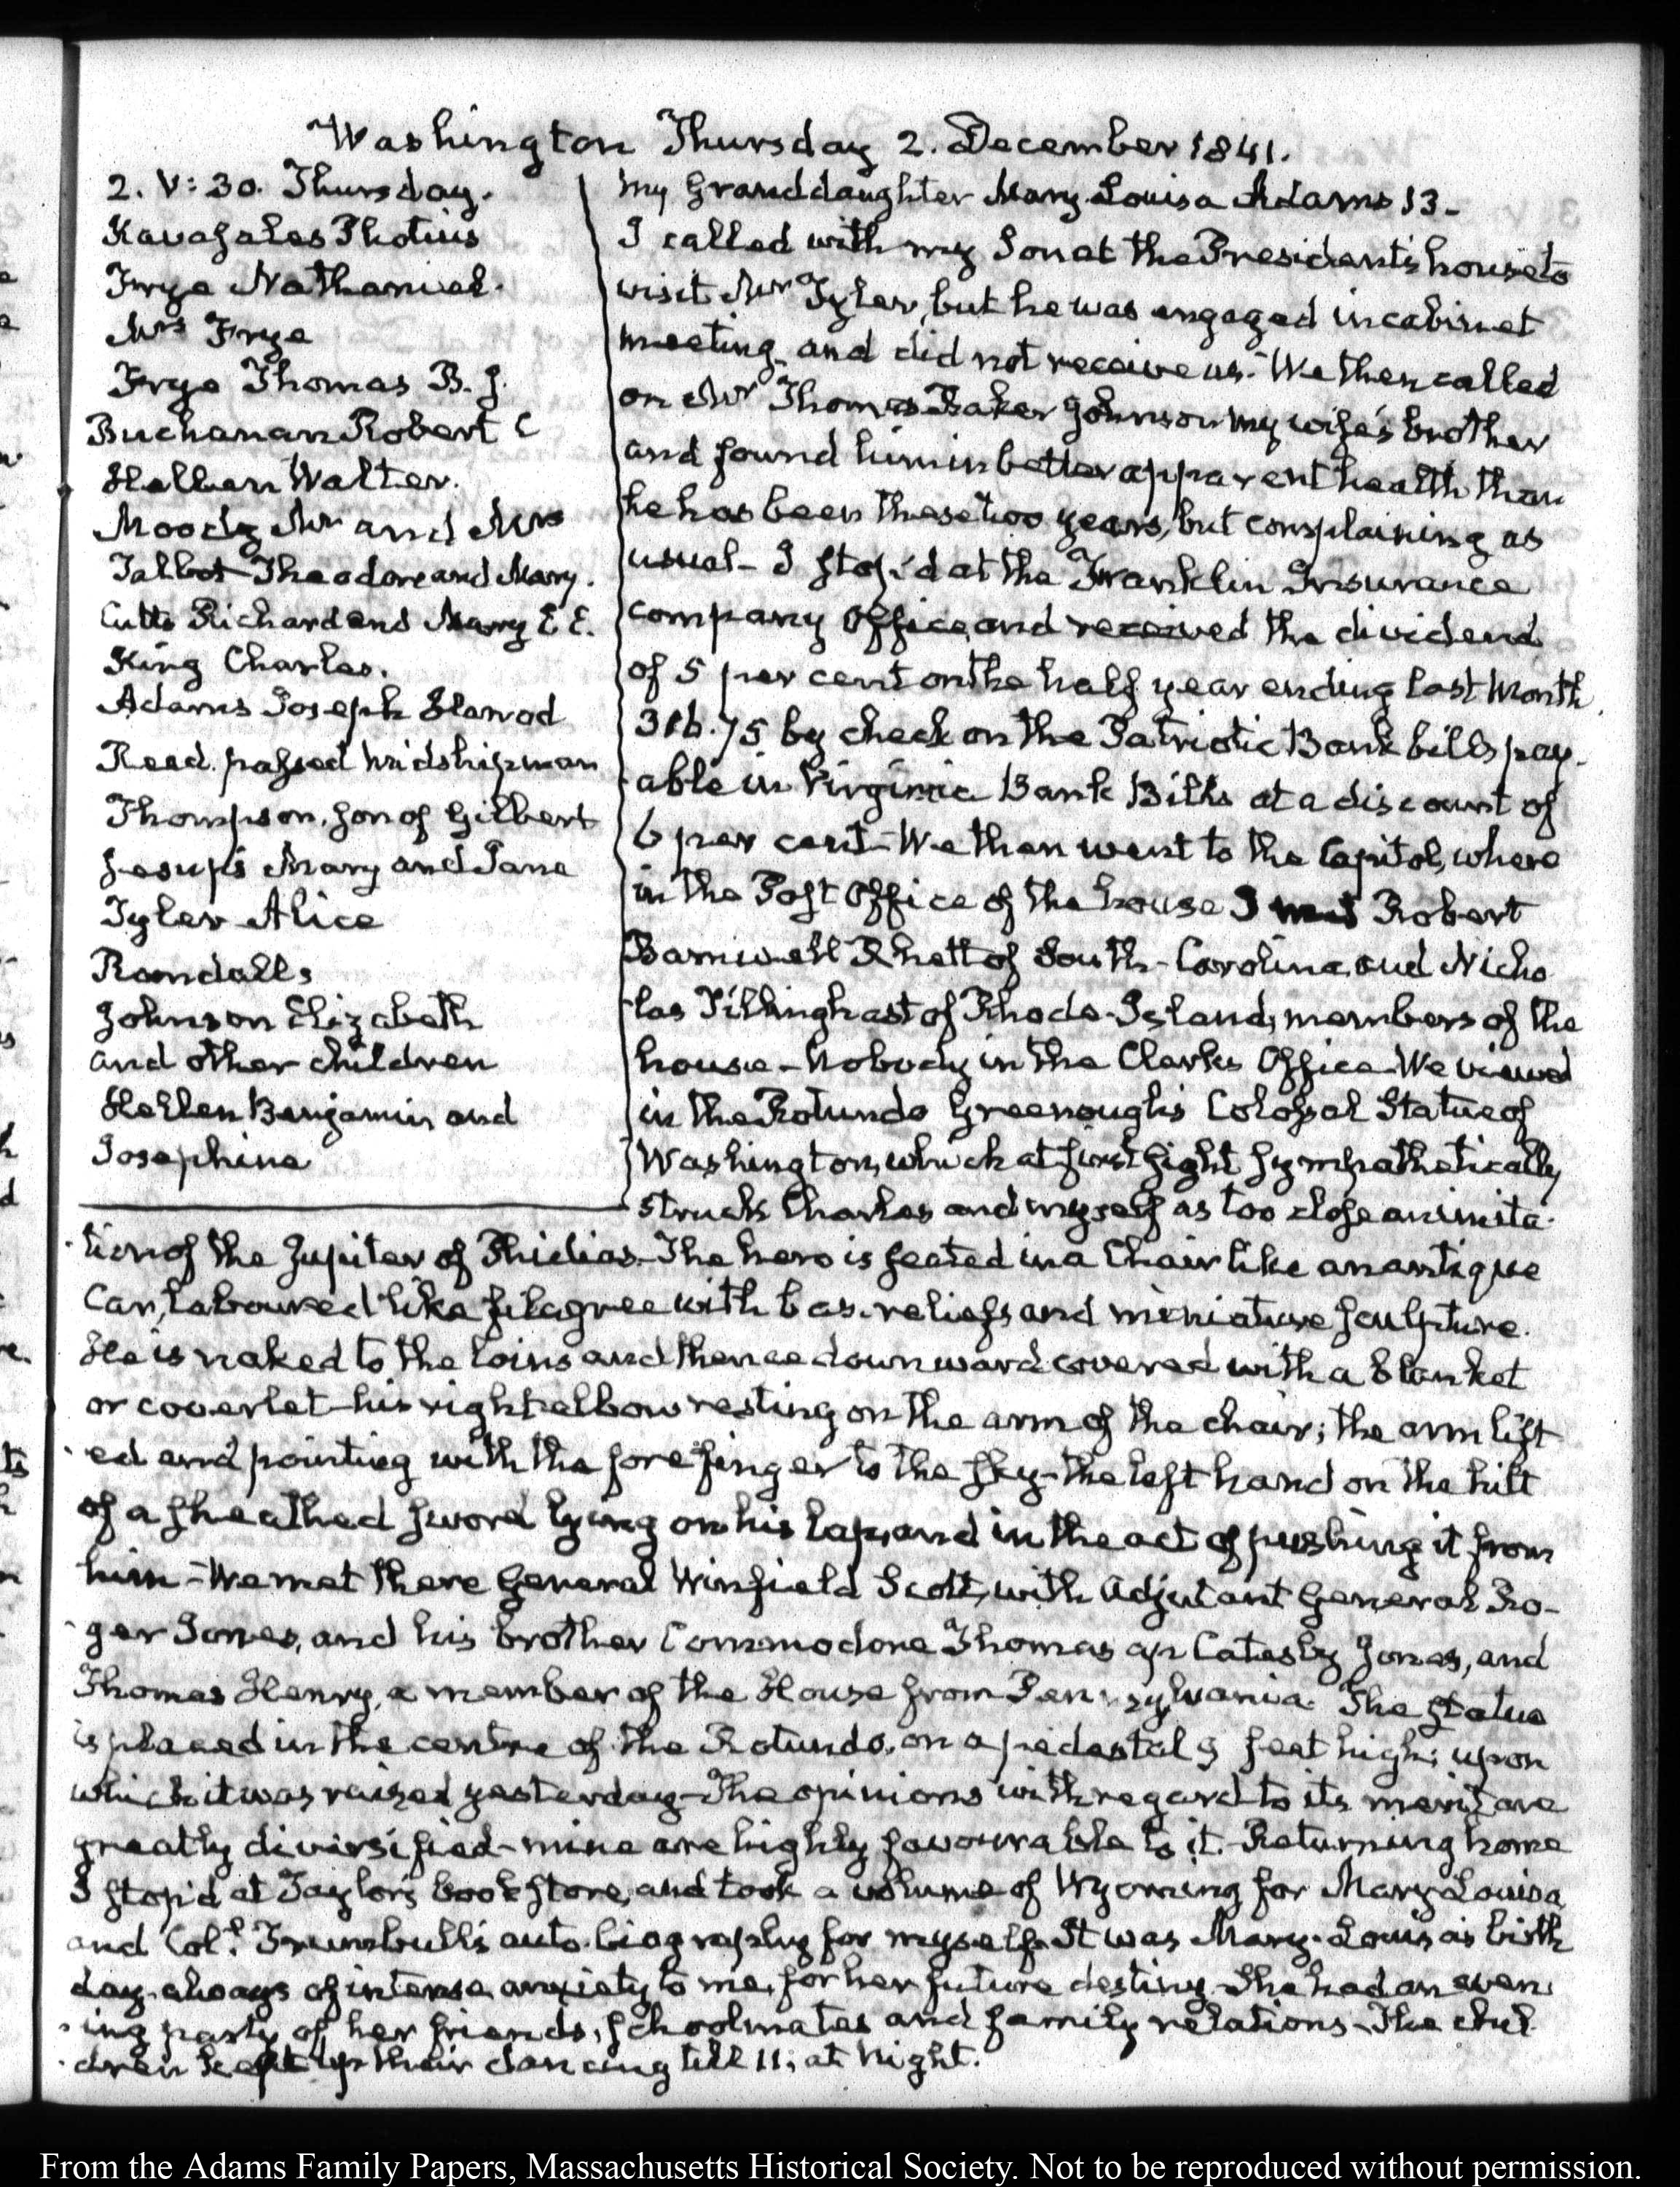 Washington Thursday 2. December 1841.
2. V: 30. Thursday.
Kavasales Photius
Frye Nathaniel.
Mrs Frye
Frye Thomas B. J.
Buchanan Robert C
Hellen Walter.
Moody Mr and Mrs
Talbot Theodore and Mary.
Cutts Richard and Mary E E.
King Charles.
Adams Joseph Harrod
Read. passed midshipman
Thompson, son of Gilbert
Jesup's Mary and Jane
Tyler Alice
Randalls
Johnson Elizabeth
and other children
Hellen Benjamin and
Josephine
my Granddaughter Mary Louisa Adams 13-
I called with my Son at the President's house to
visit Mr Tyler, but he was engaged in cabinet
meeting and did not receive us. We then called
on Mr Thomas Baker Johnson my wife's brother
and found him in better apparent health than
he has been these two years, but complaining as
usual- I stop'd at the Franklin Insurance
company Office, and received the dividend
of 5 per cent on the half year ending last Month
316.75 by check on the Patriotic Bank bills pay-
able in Virginia Bank Bills at a discount of
6 per cent-We then went to the Capitol, where
in the Post Office of the house I met Robert
Barnwell Rhett of South-Carolina, and Nicho-
las Tillinghast of Rhode-Island, members of the
house-Nobody in the Clerks Office-We viewed
in the Rotundo Greenough's Colossal Statue of
Washington, which at first sight sympathetically
struck Charles and myself as too close an imita-
tion of the Jupiter of Phidias-The hero is seated in a Chair like an antique
Car, laboured like filagree with bas-reliefs and miniature sculpture.
He is naked to the loins and thence downward covered with a blanket
or coverlet-his right elbow resting on the arm of the chair; the arm lift-
ed and pointing with the fore finger to the sky-the left hand on the hilt
of a sheathed sword lying on his lap, and in the act of pushing it from
him-We met there General Winfield Scott, with Adjutant General Ro-
ger Jones, and his brother Commodore Thomas ap Catesby Jones, and
Thomas Henry, a member of the House from Pennsylvania. The statue
is placed in the centre of the Rotundo, on a pedestal feet high; upon
which it was raised yesterday-The opinions with regard to its merit are
greatly diversified-mine are highly favourable to it-Returning home
I stop'd at Taylor's book store, and took a volume of Wyoming for Mary Louisa,
and Coll. Trumbull's auto-biography for myself-It was Mary-Louisa's birth
day-always of intense anxiety to me, for her future destiny-She had an even-
ing party of her friends, schoolmates and family relations-The chil-
dren kept up their dancing till 11, at Night.
From the Adams Family Papers, Massachusetts Historical Society. Not to be reproduced without permission.